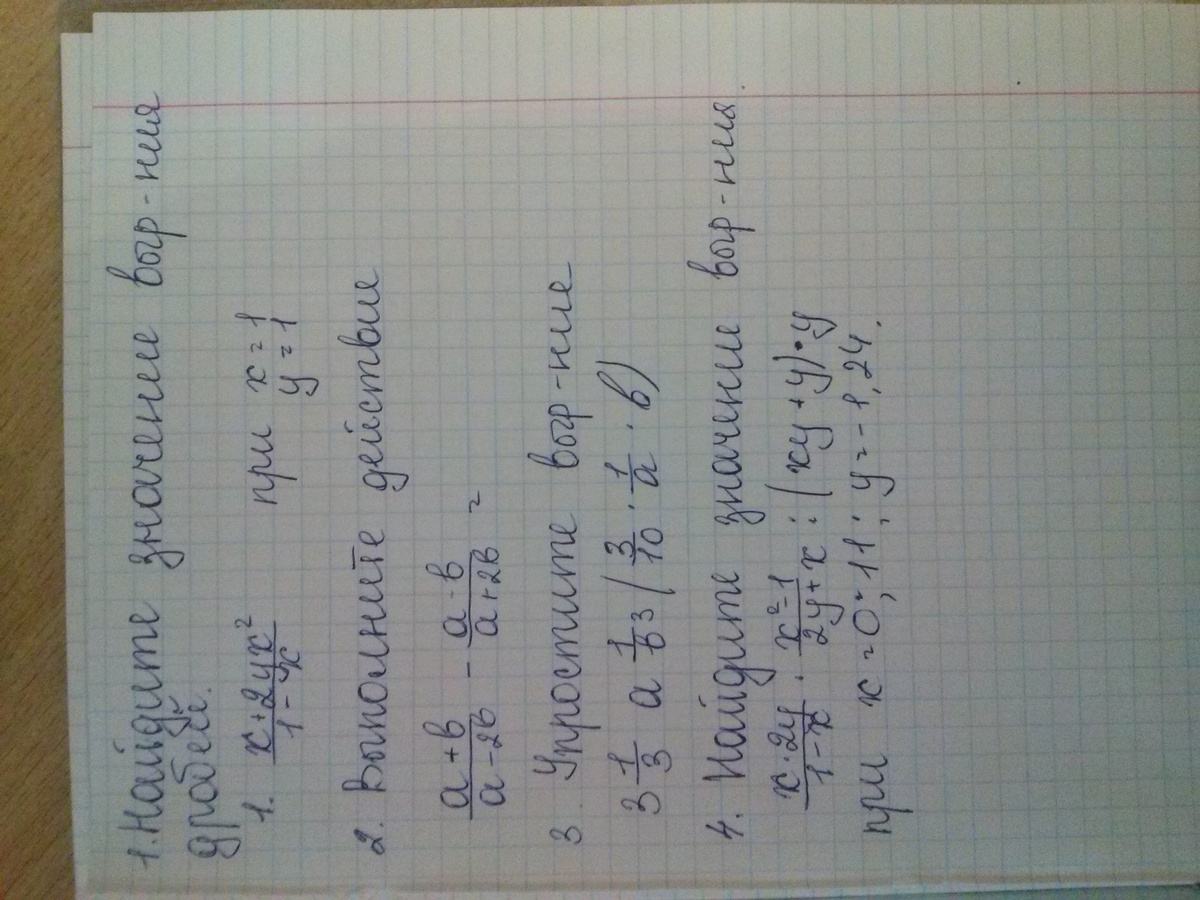 1. Найдите значение выр-ния
дробей.
1. \frac{x+2yx^2}{1-x} при x=1
y=1
2. Выполните действие
\frac{a+b}{a-2b} - \frac{a-b}{a+2b} =
3. Упростите выр-ние
3\frac{1}{3} a \frac{1}{b^3} (\frac{3}{10} · \frac{1}{a} · b)
4. Найдите значение выр-ния
\frac{x·2y}{1-x} · \frac{x^2=1}{2y+x} : (xy+y)·y
при x=0,11; y=-1,24.